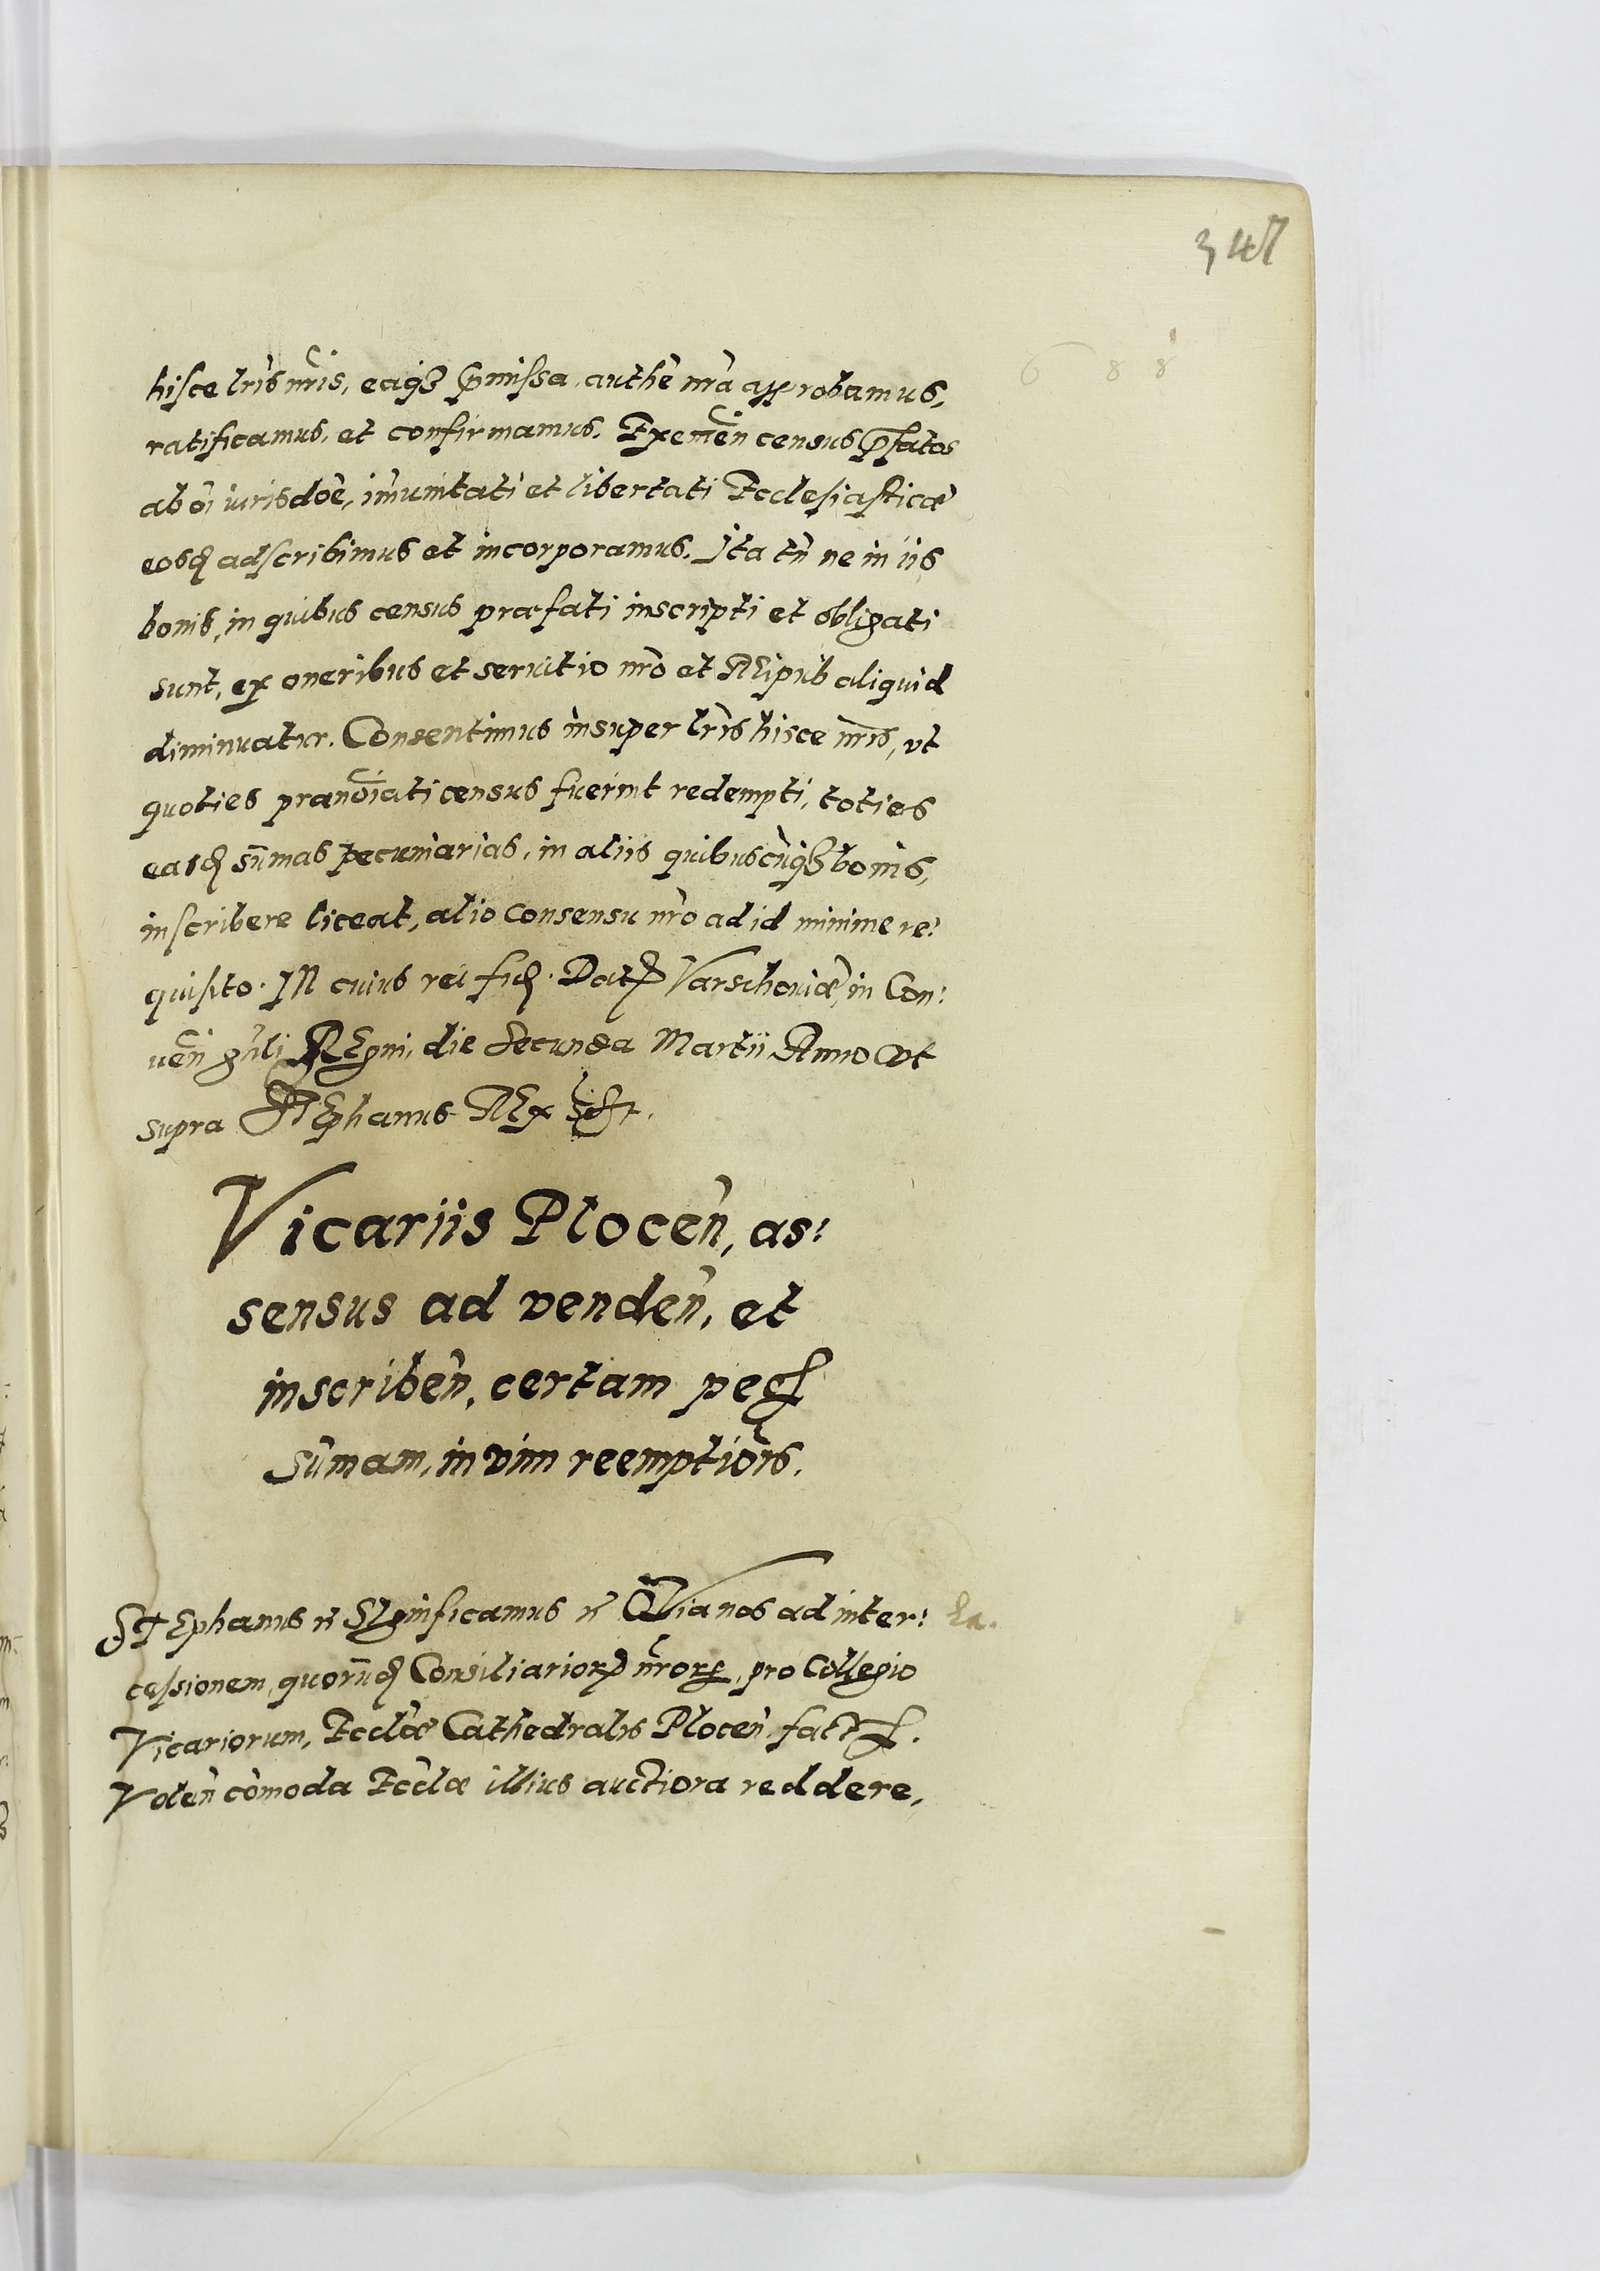 347
6 8 8
hisce lris nris, eaqz pmissa, authe nra approbamus,
ratificamus, et confirmamus. Exemen census pfatos
ab oi iurisdoe, imunitati et libertati Ecclesiasticæ
eosq adscribimus et incorporamus. Ita tn ne in iis
bonis, in quibus census præfati inscripti et obligati
sunt, ex oneribus et seruitio nro et REipub aliquid
diminuatur. Consentimus insuper lris hisce nris, vt
quoties pranoiati census fuerint redempti, toties
easd sumas pecuniarias, in aliis quibuscuqz bonis,
inscribere liceat, alio consensu nro ad id minime re:
quisito. IN cuius rei fid. Dat Varschouiæ, in Con:
uen gnli REgni, die Secunda Martii Anno Vt
supra STEphanus REx sst.
Vicariis Plocen, as:
sensus ad venden, et
inscriben, certam pec
sumam, in vim reemptiois.
STEphanus rc SIgnificamus rc QVia nos ad inter:
cessionem, quorud Consiliarior nror, pro Collegio
Vicariorum, Eccliæ Cathedralis Plocen fact.
Volen comoda Eccliæ illius auctiora reddere,